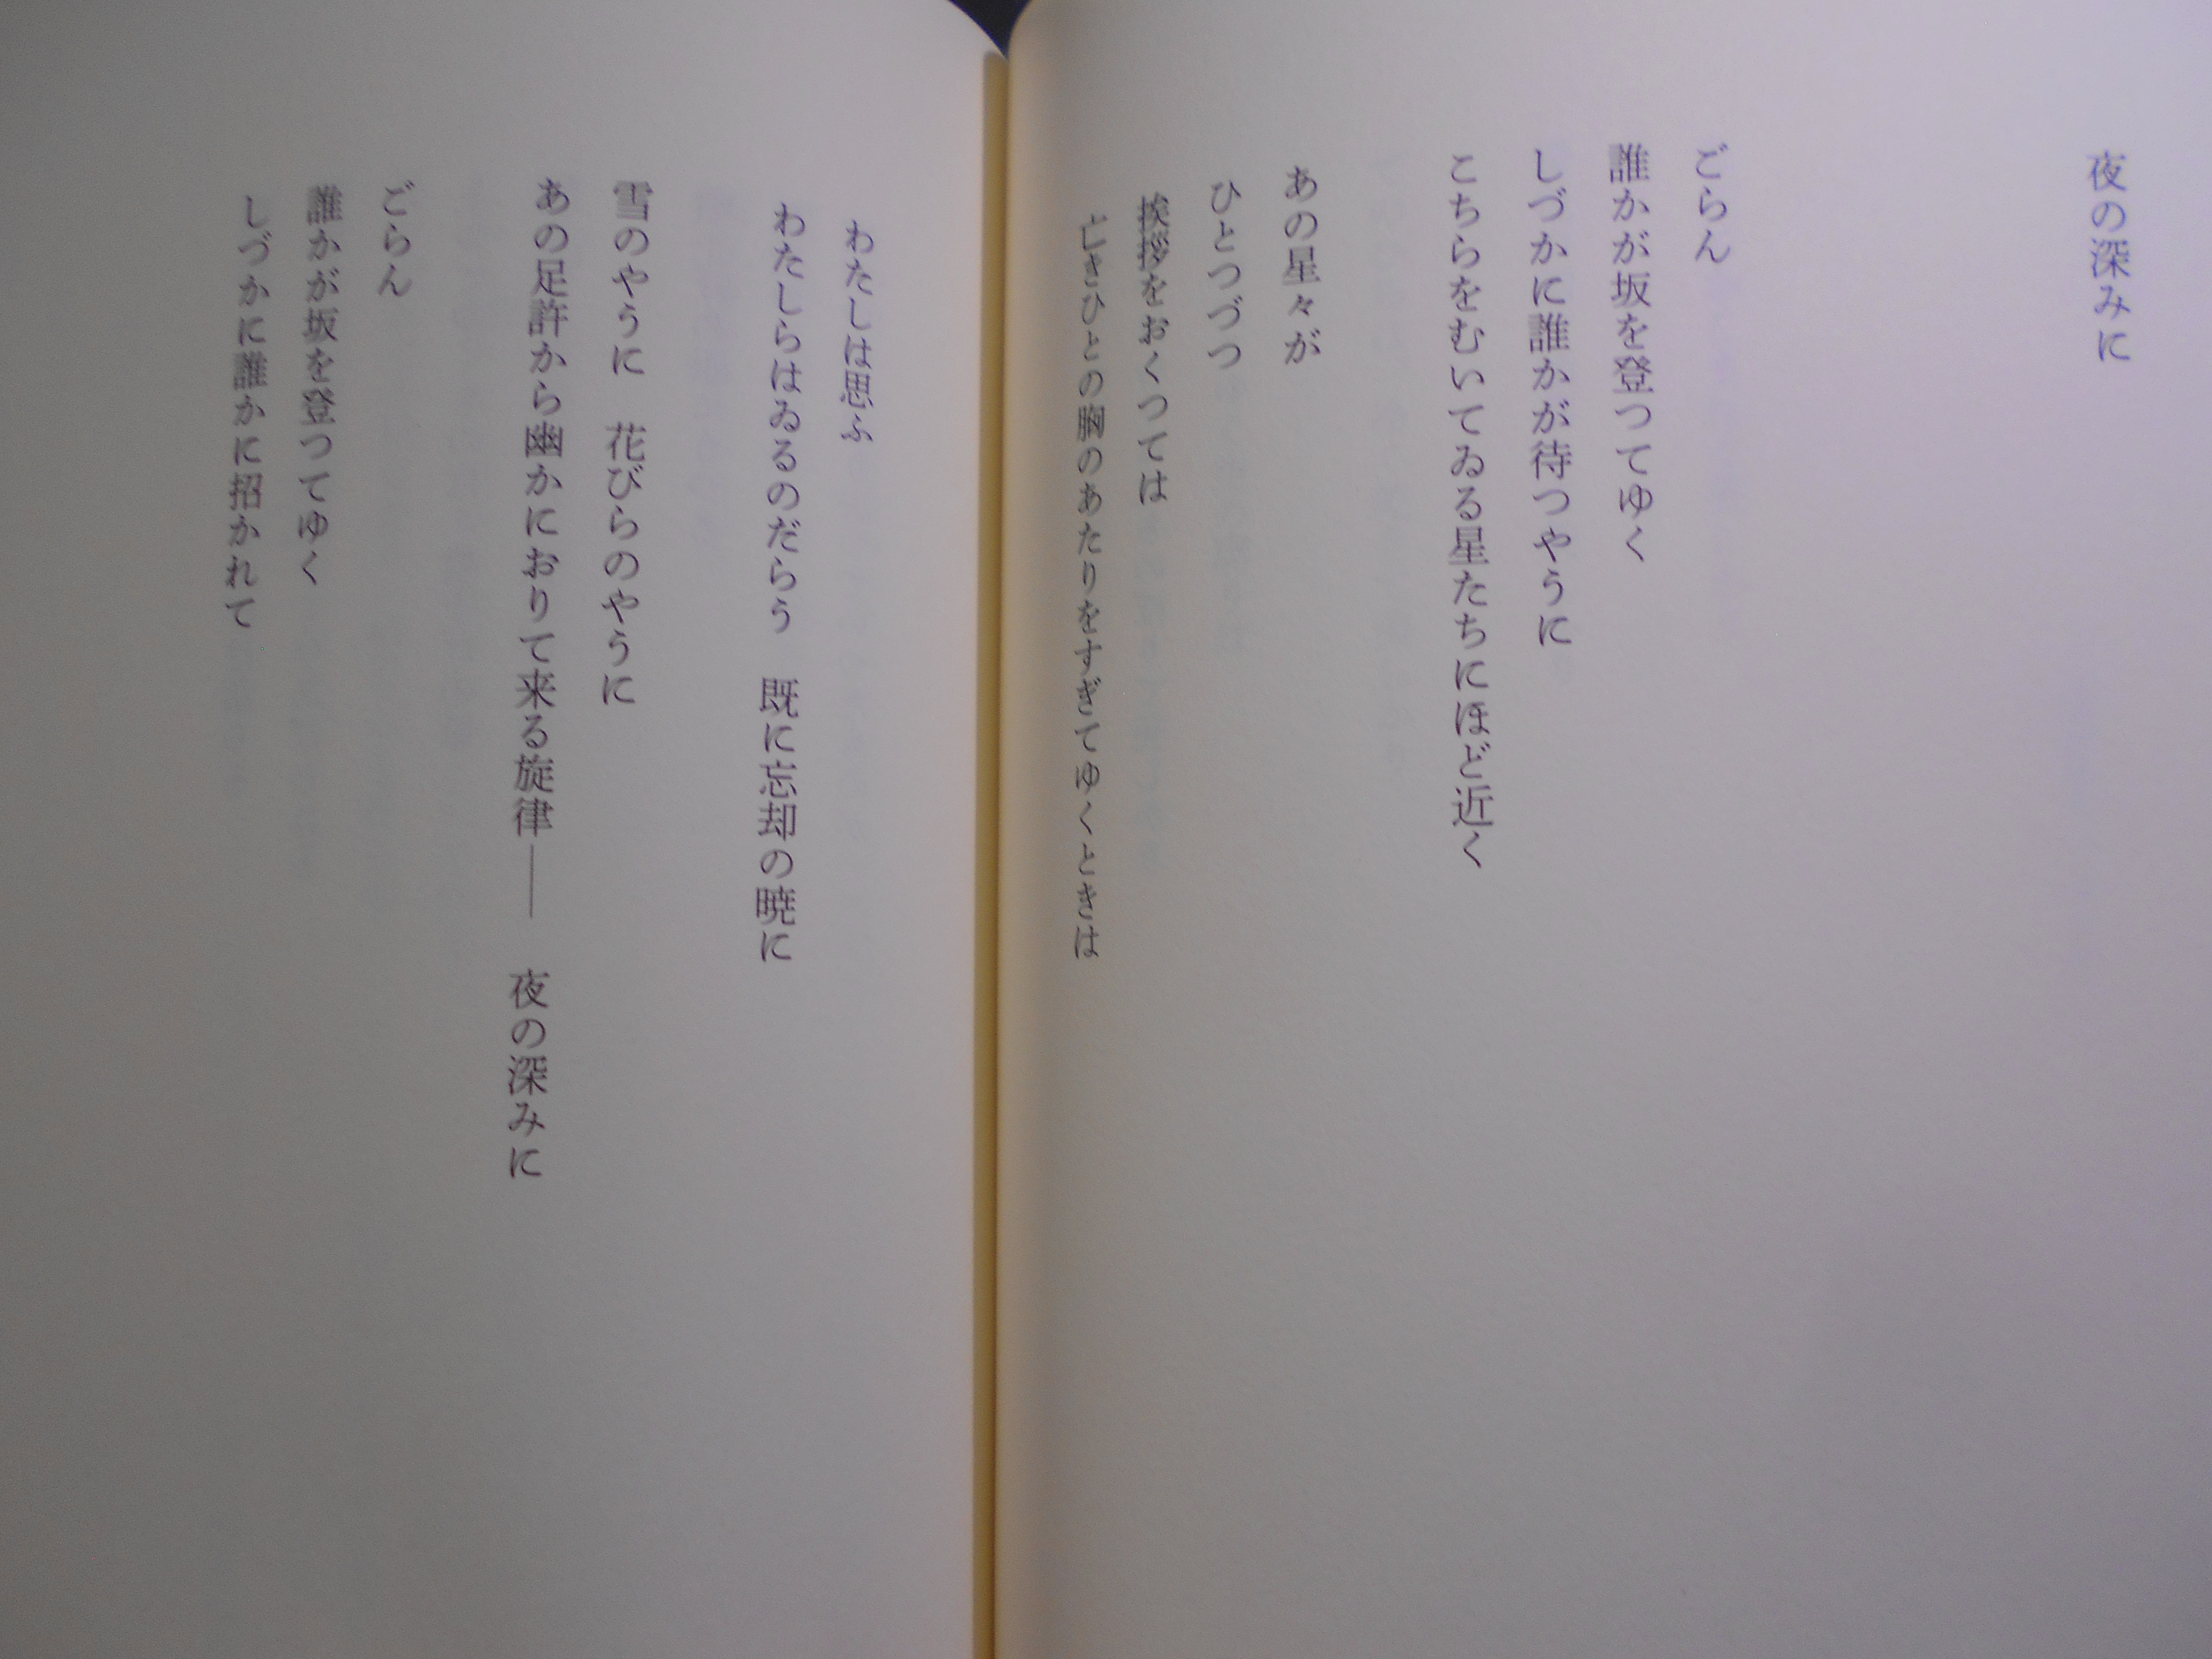 夜の深みに
ごらん
誰かが坂を登つてゆく
しづかに誰かが待つやうに
こちらをむいてゐる星たちにほど近く
あの星々が
ひとつづつ
挨拶をおくつては
亡きひとの胸のあたりをすぎてゆくときは
わたしは思ふ
わたしらはゐるのだらう　既に忘却の暁に
雪のやうに　花びらのやうに
あの足許から幽かにおりて来る旋律――　夜の深みに
ごらん
誰かが坂を登つてゆく
しづかに誰かに招かれて